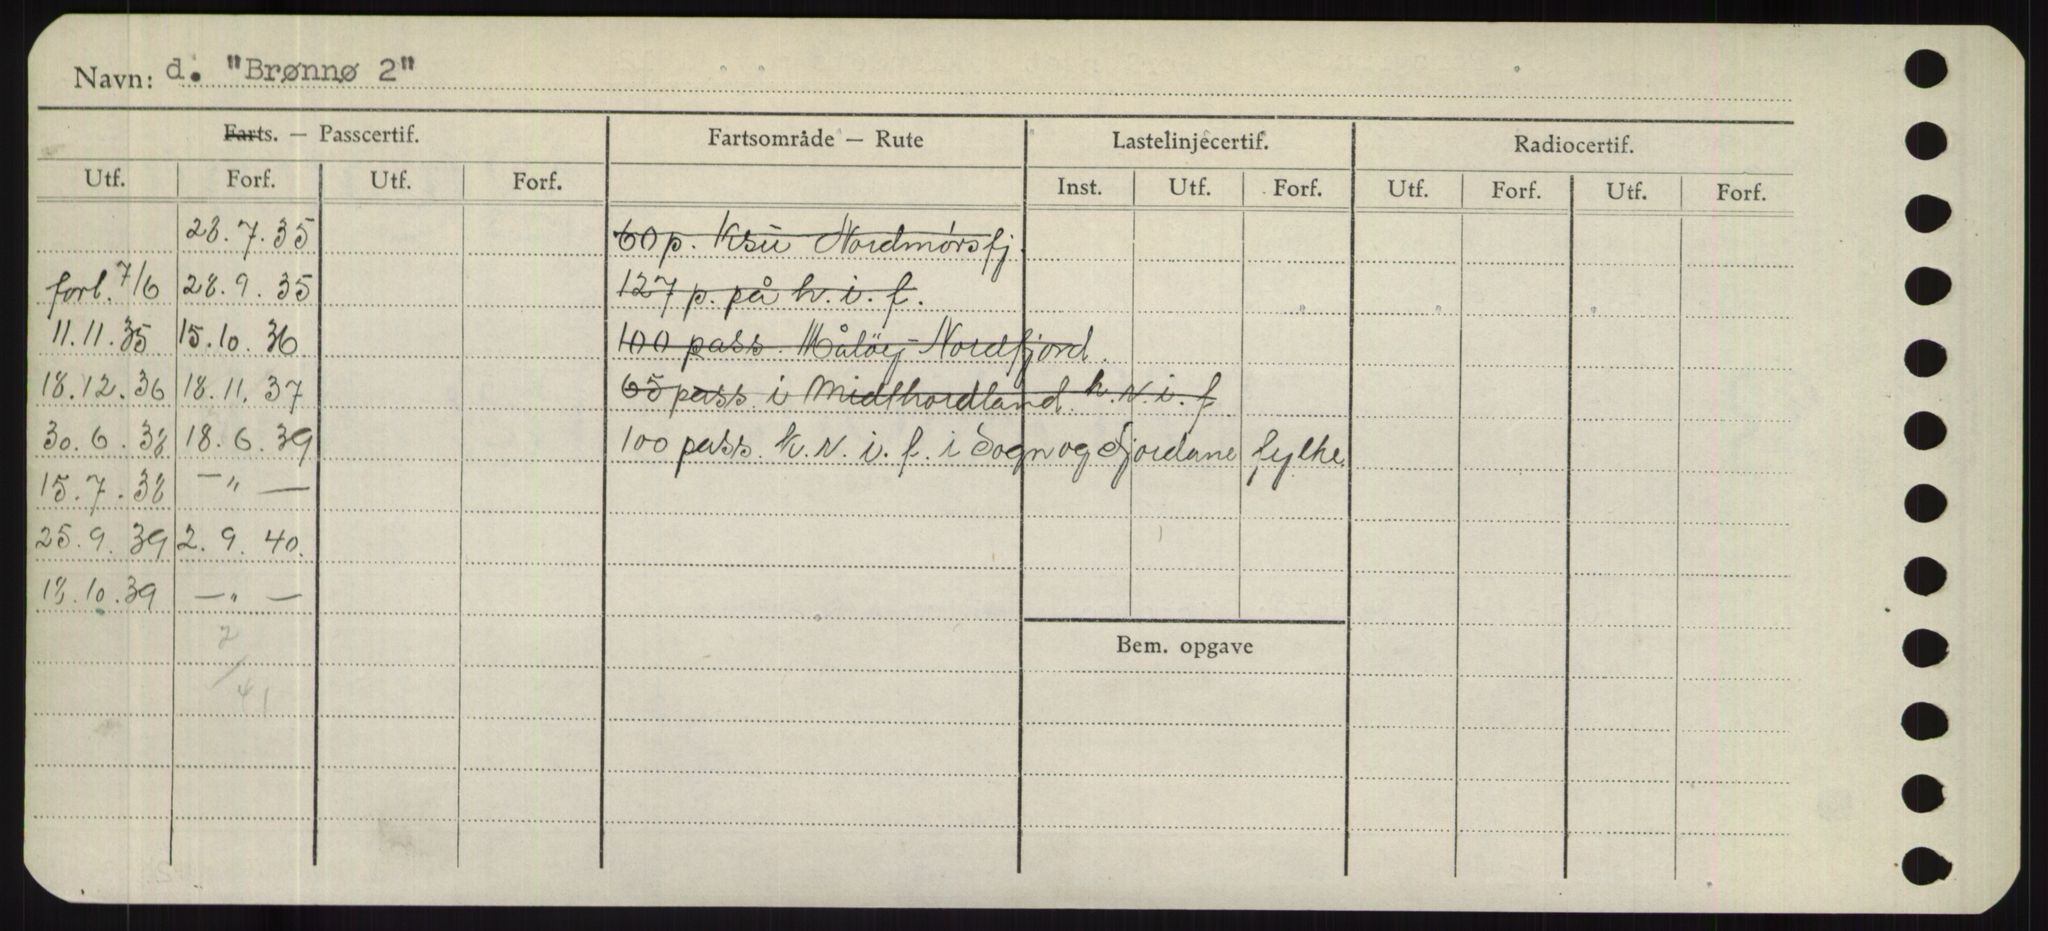 Navn: d. "Brønnø 2"
Farts. — Passcertif. Fartsområde — Rute Lastelinjecertif. Radiocertif.
Utf. Forf. Utf. Forf. Inst. Utf. Forf. Utf. Forf. Utf. Forf.
28.7.35 60 p. Ksu Nordmørsfj.
forl. 7/6 28.9.35 127 p. på h.i.f.
11.11.35 15.10.36 100 pass. Måløy-Nordfjord.
18.12.36 18.11.37 65 pass i Midthordland k.v.i.f
30.6.38 18.6.39 100 pass. k.v.i.f. i Sogn og Fjordane fylke.
15.7.38 — " —
25.9.39 2.9.40.
18.10.39 — " —
2/41
Bem. opgave